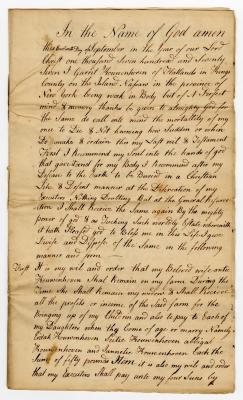 In the Name of God amen
this day of September in the Year of our Lord
Christ one thousand Seven hundred and Seventy
Seven I Garret Kouwenhoven of Flatlands in Kings
County on the Island Nassau in the province of
New York being weak in Body but of A Perfect
mind & memory thanks be given to almighty God for
the Same do call into mind the mortallity of my
one to Die & Not knowing how Sudden or when
Do make & ordain this my Last will & Testament
First I recommend my Soul into the hands of god
that gave it and for my Body I recommend after my
Decease to the Earth to be Buried in a Christian
Like & Decent manner at the Discretion of my
Executors Nothing Doubting But at the General Resurrec
tion I Shall Receive the Same again By the mighty
power of god & as Touching Such worldly Estate wherewith
it hath Pleased god to Bless me in this Life I give
Devise and Dispose of the Same in the following
manner and form
First It is my will and order that my Beloved wife antie
Kouwenhoven Shall Remain on my farm During the
time she Shall Remain my widow & Shall Receive
all the profits or income of the Said farm for the
Bringing up of my Children and also to pay to Each of
my Daughters when they Come of age or marry Namely
Kouwenhoven Kouwenhoven
Kouwenhoven and Jannetie Kouwenhoven Each the
Sum of fifty pounds Item it is also my will and order
that my Executors Shall pay unto my four Sons by